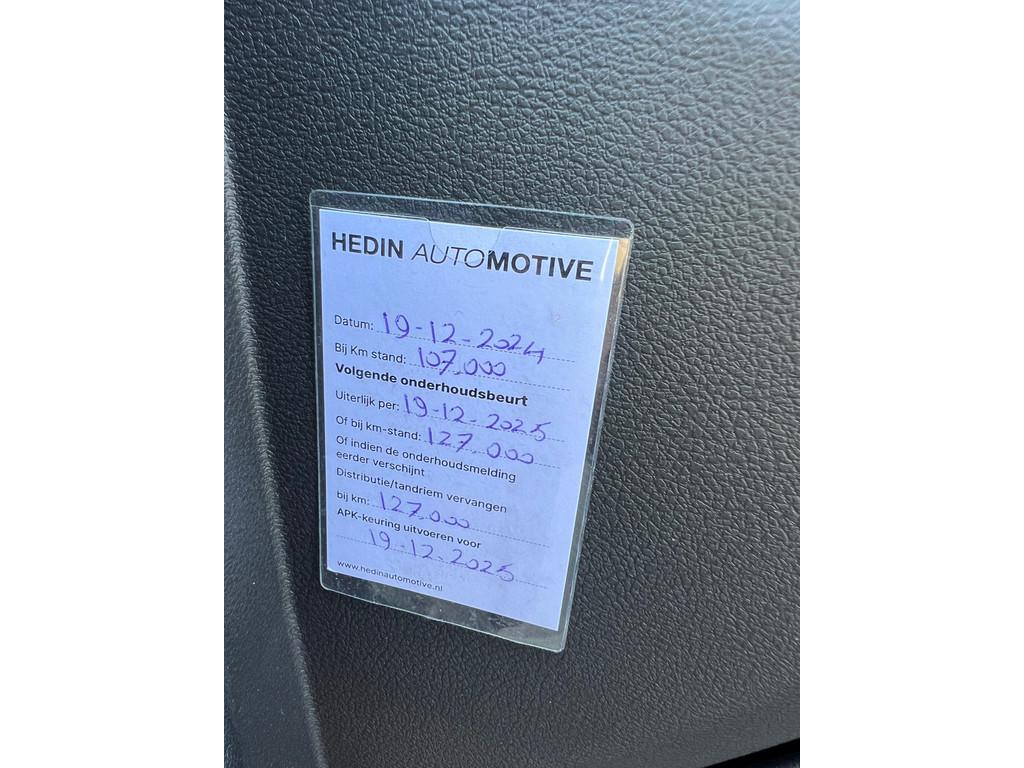 HEDIN AUTOMOTIVE
Datum: 19-12-2024
Bij Km stand: 107.000
Volgende onderhoudsbeurt
Uiterlijk per: 19-12-2025
Of bij km-stand: 127.000
Of indien de onderhoudsmelding
eerder verschijnt
Distributie/tandriem vervangen
bij km: 127.000
APK-keuring uitvoeren voor
19-12-2025
www.hedinautomotive.nl